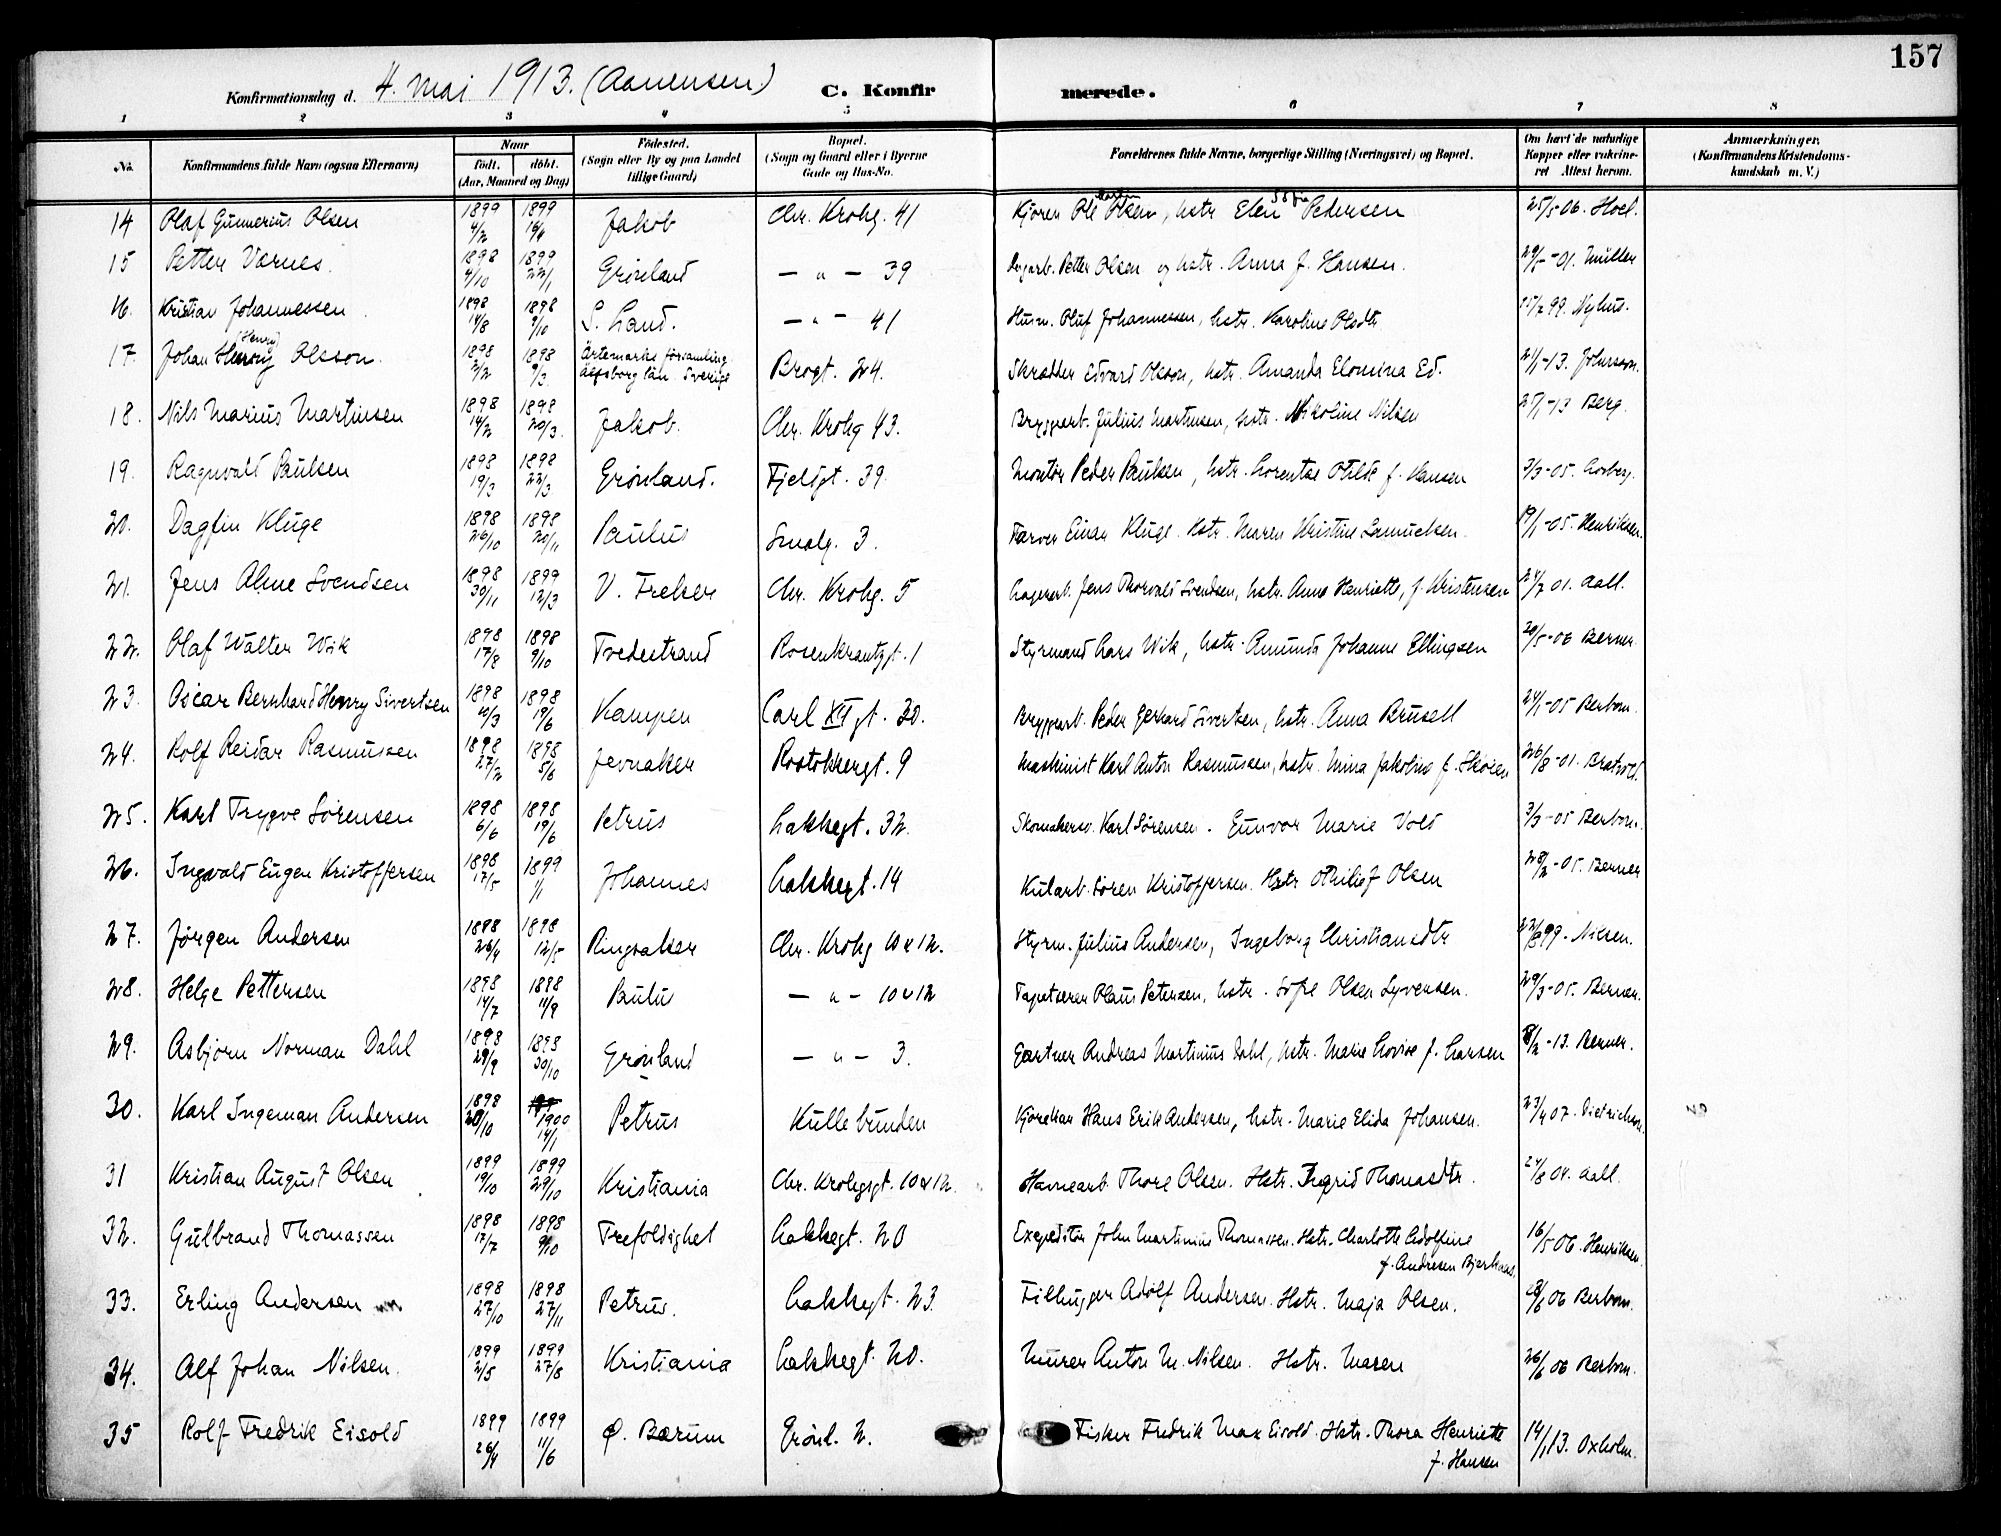 157
Konfirmationsdag d. 4. Mai 1913. (Aanensen) C. Konfirmerede.
1 2 3 4 5 6 7 8
No. Konfirmandens fulde Navn (ogsaa Efternavn) Naar født. døbt. (Aar, Maaned og Dag) Fødested. (Sogn eller By og paa Landet tillige Gaard) Bopæl. (Sogn og Gaard eller i Byerne Gade og Hus-No. Forældrenes fulde Navne, borgerlige Stilling (Næringsvei) og Bopæl. Om havt de naturlige Kopper eller vaksineret Attest herom. Anmærkninger. (Konfirmandens Kristendomskundskab m. V.)
14 Olaf Gunnerius Olsen 1899 4/2 1899 16/4 Jakob Chr. Krohg. 41 Kjører Ole Martin Olsen, hstr. Elen Pedersen 25/5 06. Hoel.
15 Petter Værnes. 1898 4/10 1899 22/1 Grønland — " — 39 Petter Olsen og hstr. Anna f. Hansen. 29/5 -01. Müller
16. Kristian Johannessen 1898 14/8 1898 9/10 S. Land. — " — 41 Husm. Oluf Johannessen, hstr. Karoline Olsdtr 99. Nyhus.
17. Johan Henry (Henry) Olsson. 1898 2/2 1898 9/3 Ärtemarks församling Älfsborg län Sverige Brogt. 24. Skrædder Edvard Olsson, hstr. Amanda Elomina Ed. 21/1-13. Johnsson.
18. Nils Marius Martinsen 1898 14/2 1898 20/3. Jakob. Chr. Krohg 43. Bryggearb. Julius Martinsen, hstr. Nikoline Nilsen 27/1-13 Berg.
19. Ragnvald Paulsen 1898 19/3 1898 22/3 Grønland. Fjeldgt. 39. Montør Peder Paulsen, hstr. Lorentze Otilde f. Hansen 3/3-05.
20. Dagfin Kluge 1898 26/10 1898 20/11 Paulus Smalg. 3. Farver Einar Kluge. hstr. Maren Kristine Samuelsen. 19/1-05. Henriksen.
21. Jens Alme Svendsen 1898 30/11 1899 12/3 V. Frelser Chr. Krohg. 5 Lagerarb. Jens Thorvald Svendsen, hstr. Anne Henriette, f. Kristensen 24/7 01. Aall.
22. Olaf Walter Wik 1898 17/8 1898 9/10 Tvedestrand Rosenkrantzgt. 1 Styrmand Lars Wik, hstr. Amunda Johanne Ellingsen 20/5-06 Berner.
23. Oscar Bernhard Henry Sivertsen 1898 10/3 1898 19/6 Kampen Carl XII gt. 30. Bryggearb. Peder Gerhard Sivertsen, hstr. Anna Brusell 24/1-05 Berbom.
24. Rolf Reidar Rasmussen 1898 27/2 1898 5/6 Jevnaker Rostokkergt. 9 Maskinist Karl Anton Rasmussen, hstr. Mina Jakobine f. Skøien 26/8-01. Bratvold.
25. Karl Trygve Sørensen 1898 6/6 1898 19/6 Petrus Lakkegt. 32. Skomakersv. Karl Sørensen. Gunvor Marie Vold 3/3-05 Berbom.
26. Ingvald Eugen Kristoffersen 1898 17/5 1899 1/1 Johannes Lakkegt. 14 Kularb. Søren Kristoffersen. Hstr. Othilie f. Olsen 28/2-05. Berner
27. Jørgen Andersen 1898 26/4 1898 12/5 Ringsaker Chr. Krohg 10 & 12. Styrm. Julius Andersen, Ingeborg Christiansdtr 22/8 99. Nilsen.
28. Helge Pettersen 1898 14/7 1898 11/9 Paulu — " — 10 & 12 Tapetserer Olaus Petersen, hstr. Sofie Olsen Syversen. 29/3-05. Berner.
29. Asbjørn Norman Dahl 1898 29/9 1898 30/10 Grønland — " — 3. Gartner Andreas Martinius Dahl, hstr. Marie Lovise f. Larsen 8/2-13. Berner.
30. Karl Ingeman Andersen 1898 28/10 1900 14/1 Petrus Kullebunden Kjørekar Hans Erik Andersen, hstr. Marie Elida Johansen. 23/4 07. Dietrichson.
31 Kristian August Olsen 1899 19/10 1899 29/10 Kristiania Chr. Krohgsgt. 10 & 12. Havnearb. Thore Olsen. Hstr. Ingrid Thomasdtr. 24/8 04. Aall.
32. Gulbrand Thomassen 1898 17/7 1898 9/10 Trefoldighet Lakkegt. 20 Expeditør John Martinius Thomassen. Hstr. Charlotte Adolfine f. Andresen Bjerknes. 16/5 06. Henriksen.
33. Erling Andersen 1898 27/10 1898 27/11 Petrus. Lakkegt. 23. Filhugger Adolf Andersen. Hstr. Maja Olsen. 28/6 06 Berbom.
34. Alf Johan Nilsen. 1899 2/5 1899 27/8 Kristiania Lakkegt. 20. Murer Anton M. Nilsen. Hstr. Maren 26/6 06 Berbom.
35 Rolf Fredrik Eisold 1899 26/4 1899 11/6 Ø. Bærum Grønl. 2. Fisker Fredrik Max Eisold. Hstr. Thora Henriette f. Hansen 14/1 13. Oxholm.